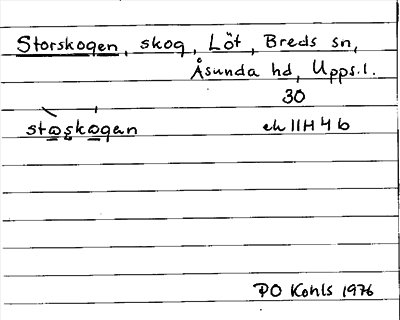 Storskogen, skog, Löt, Breds sn,
Åsunda hd, Upps.l.
30
stωs̨kωgan ek 11H 4 b
PO Kohls 1976